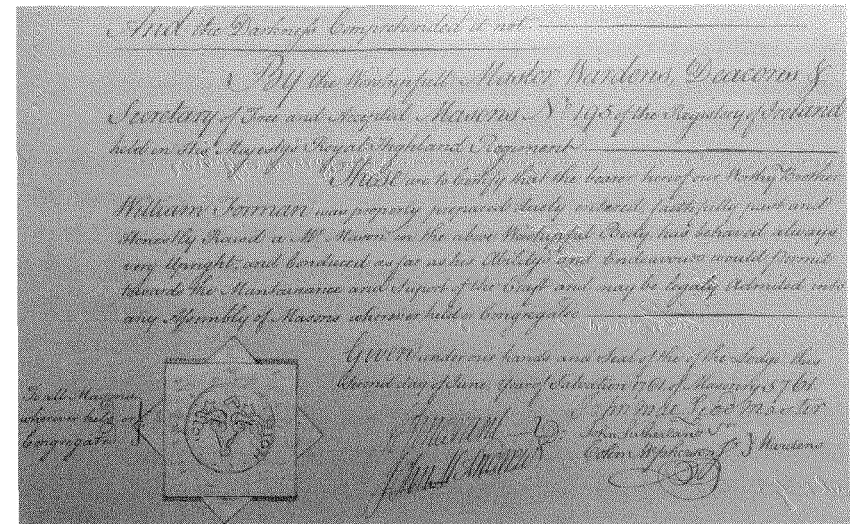 And the Darkness Comprehended it not.
By the Worshipfull Master Wardens, Deacons &
Secretary of Free and Accepted Masons No. 195 of the Registery of Ireland
held in His Majestys Royal Highland Regiment
These are to Certify that the bearer hereof our Worthy Brother
William Forman was properly prepared duely entered faithfully past and
Honestly Raised a Mr Mason in the above Worshipful Body has behaved always
very Upright, and Conduced as far as his Ability and Endeavours would Permit
towards the Maintainance and Suport of the Craft and may be legaly Admited into
any Assembly of Masons wherever held or Congregated
Given under our hands and Seal of the of the Lodge this
Second day of June year of Salvation 1761 of Masonry 5761
To all Masons
wherever held or
Congregated
Master
John Sutherland Sr
Colin Mcpherson Jr } Wardens